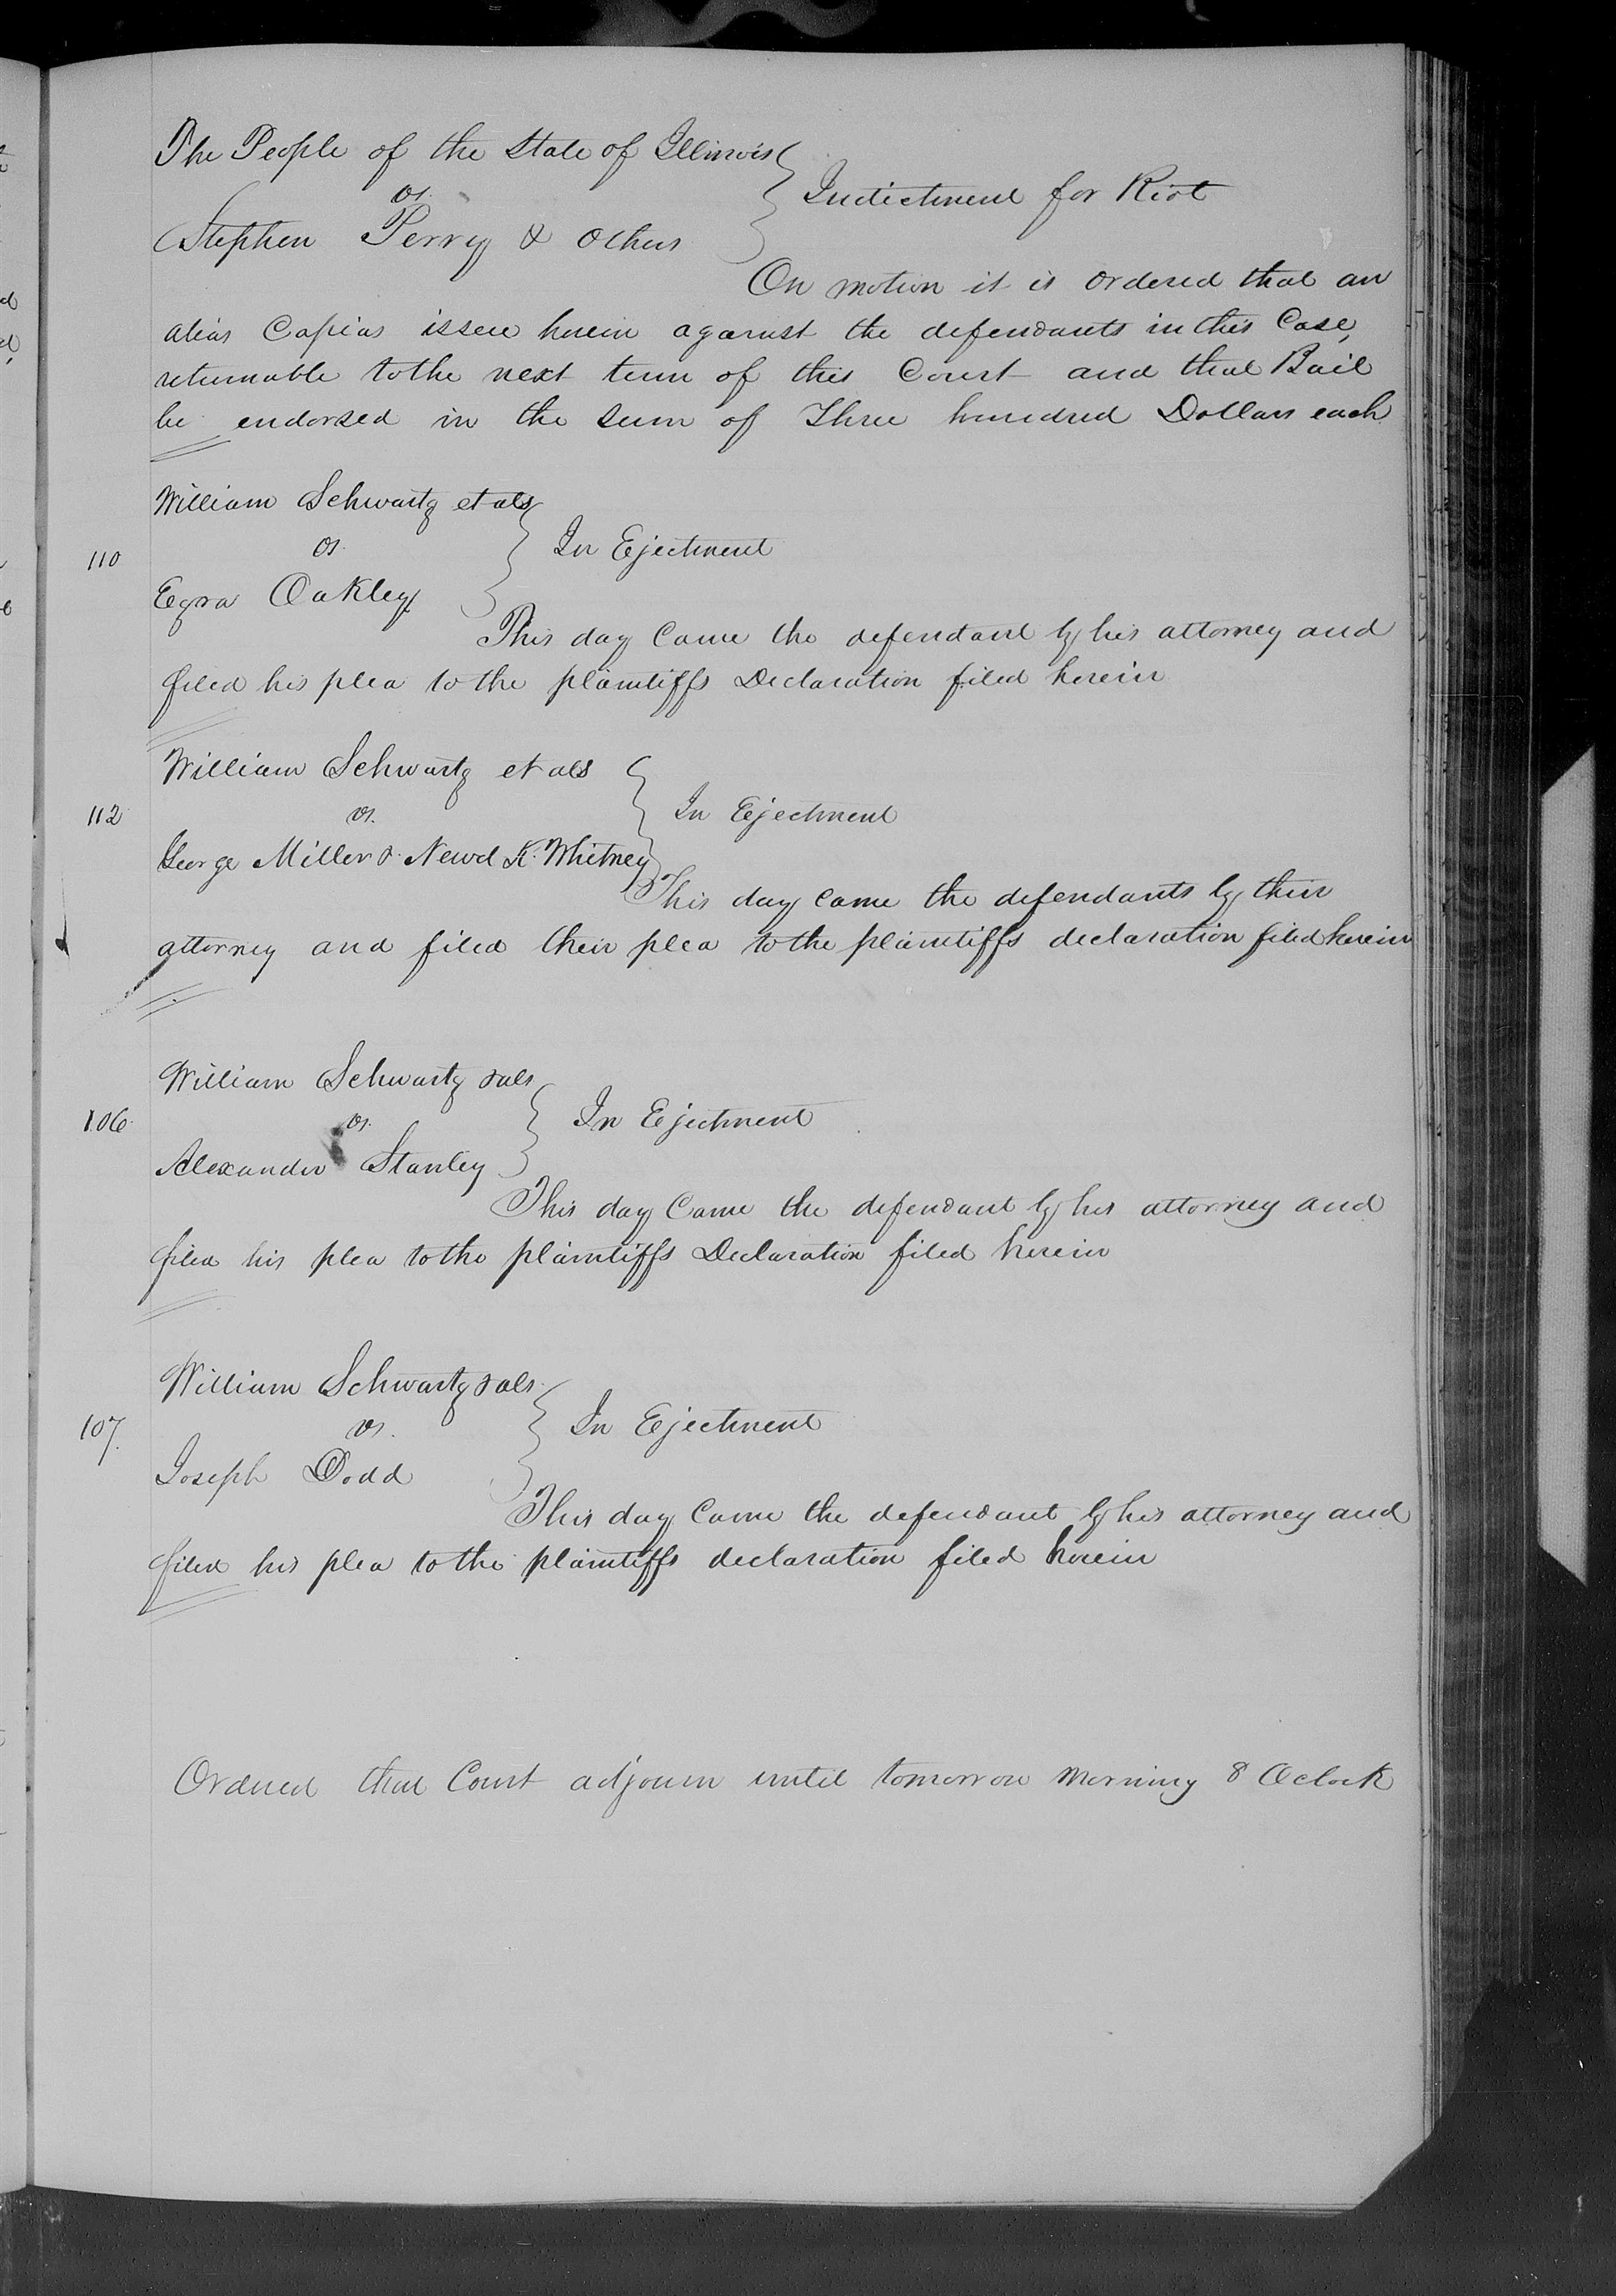 The People of the State of Illinois
vs.
Indictment for Riot
Stephen Perry & Others
On motion it is ordered that an
alias Capias issue herein against the defendants in this Case,
returnable to the next term of this Court and that Bail
be endorsed in the sum of Three hundred Dollars each
William Schwartz et als
110 vs. In Ejectment
Ezra Oakley
This day Came the defendant by his attorney and
filed his plea to the plaintiffs Declaration filed herein
William Schwartz et als
112 vs. In Ejectment
George Miller & Newel K. Whitney
This day came the defendants by their
attorney and filed their plea to the plaintiffs declaration filed herein
William Schwartz & als
106 vs. In Ejectment
Alexander Stanley
This day Came the defendant by his attorney and
filed his plea to the plaintiffs Declaration filed herein
William Schwartz & als
107. vs. In Ejectment
Joseph Dodd
This day Came the defendant by his attorney and
filed his plea to the plaintiffs declaration filed herein
Ordered that Court adjourn until tomorrow Morning 8 Oclock